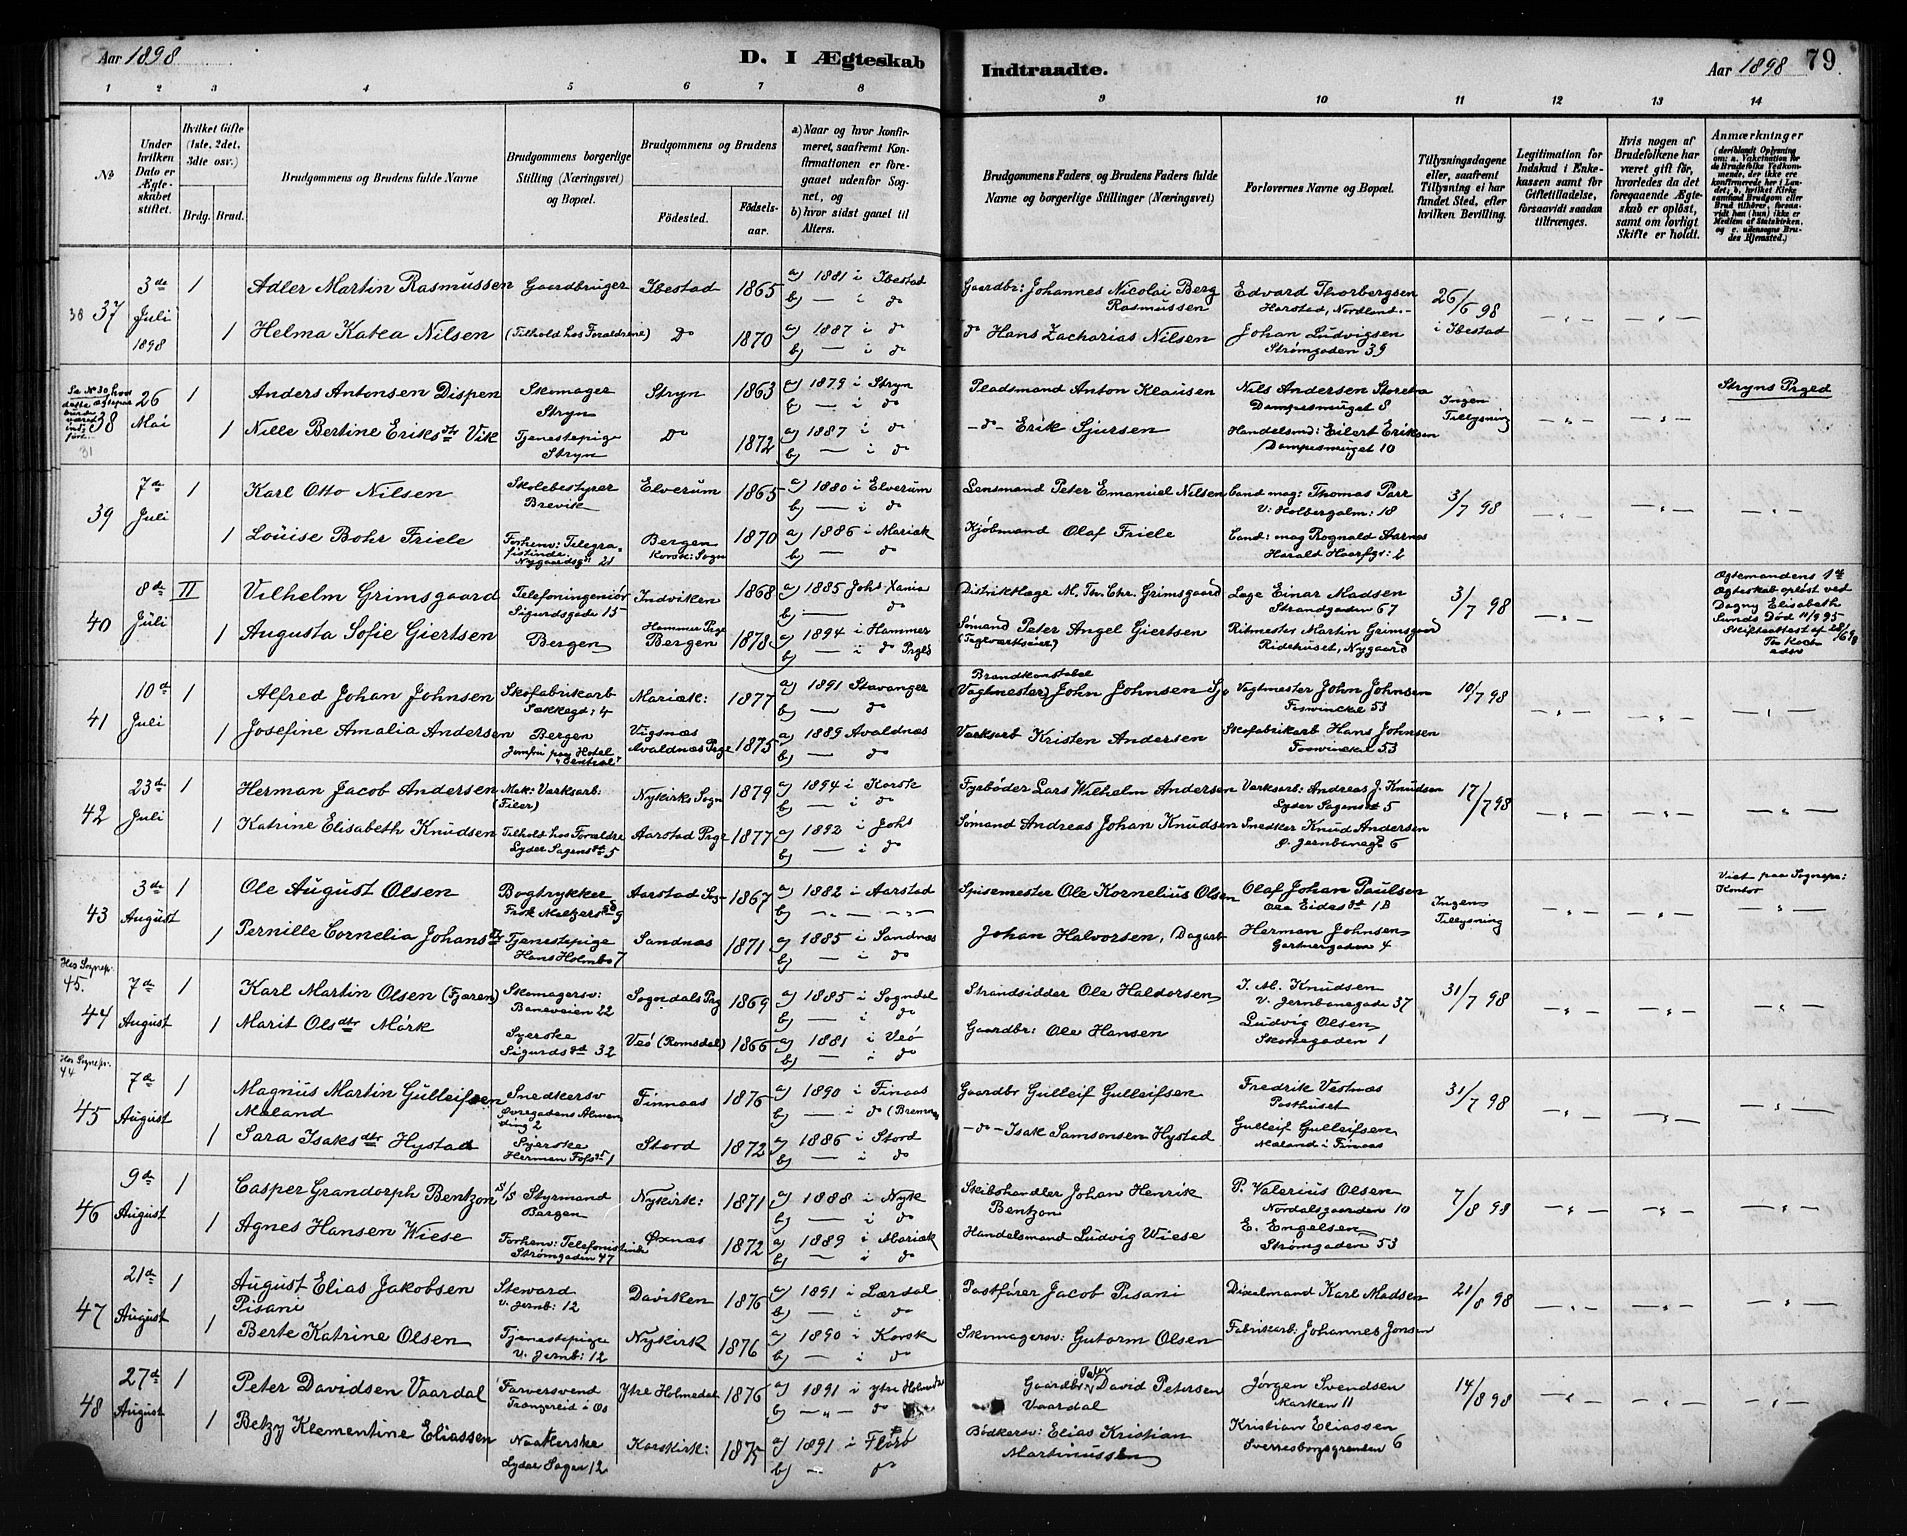 Aar 1898
D. I Ægteskab
Indtraadte.
Aar 1898
79
1 2 3 4 5 6 7 8 9 10 11 12 13 14
No
Under hvilken Dato er Ægteskabet stiftet.
Hvilket Gifte (1ste, 2det, 3die osv.)
Brdg. Brud.
Brudgommens og Brudens fulde Navne
Brudgommens borgerlige Stilling (Næringsvei) og Bopæl.
Brudgommens og Brudens
Fødested.
Fødselsaar.
a) Naar og hvor konfirmeret, saafremt Konfirmationen er foregaaet udenfor Sognet, og
b) hvor sidst gaaet til Alters.
Brudgommens Faders, og Brudens Faders fulde Navne og borgerlige Stillinger (Næringsvei)
Forlovernes Navne og Bopæl.
Tillysningsdagene eller, saafremt Tillysning ei har fundet Sted, efter hvilken Bevilling.
Legitimation for Indskud i Enkekassen samt for Giftetilladelse, forsaavidt saadan tiltrænges.
Hvis nogen af Brudefolkene har været gift før, hvorledes da det foregaaende Ægteskab er opløst, samt om lovligt Skifte er holdt.
Anmærkninger
37 3de Juli 1898
1 Adler Martin Rasmussen Gaardbruger Ibestad 1865 a) 1881 i Ibestad b) — i do
Gaardbr: Johannes Nicolai Berg Rasmussen
Edvard Thorbergsen Harstad, Nordland.-
26/6 98 i Ibestad
1 Helma Katea Nilsen (Tilhold hos Forældrene) Do 1870 a) 1887 i do b) — i do
do Hans Zacharias Nilsen
Johan Ludvigsen Strømgaden 39
38 26 Mai
1 Anders Antonsen Dispen Skomager Stryn Stryn 1863 a) 1879 i Stryn b) — i do
Pladsmand Anton Klausen
Nils Andersen Storetra Dampesmuget 8
Ingen Tillysning
Stryns Prged
1 Nille Bertine Eriksdtr Vik Tjenestepige Stryn Do 1872 a) 1887 i do b) — i do
-do- Erik Sjursen
Handelsmd: Eilert Eriksen Dampesmuget 10
31
39 7de Juli
1 Karl Otto Nilsen Skolebestyrer Brevik Elverum 1865 a) 1880 i Elverum b) — i do
Lensmand Peter Emanuel Nilsen
Cand mag: Thomas Parr V: Holbergalm: 18
3/7 98
1 Louise Bohr Friele Forhenv: Telegrafistinde Nygaardsgt 21 Bergen Korsk: Sogn 1870 a) 1886 i Mariak b) — do
Kjøbmand Olaf Friele
Cand: mag Rognald Aarnas Harald Haarfgr: 2
40 8de Juli
II Vilhelm Grimsgaard Telefoningeniør Sigurdsgade 15 Indviken 1868 a) 1885 Johs Xania b) — do
Distriktlæge M. Th. Chr. Grimsgaard
Læge Einar Madsen Strandgaden 67
3/7 98
Ægtemandens 1ste Ægteskab opløst ved Dagny Elisabeth Lunds Død 11/9 95
1 Augusta Sofie Giertsen Bergen Hammer Prgd Bergen 1878 a) 1894 i Hammer b) — i do Prgld
Sømand Peter Angel Giertsen
Ritmester Martin Grimsgaard Ridehuset, Nygaard
41 10de Juli
1 Alfred Johan Johnsen Skofabrikarb Sækkegd: 4 Mariæk: 1877 a) 1891 Stavanger b) — do
Brandkonstabel (Vagtmester) John Johnsen
Vagtmester John Johnsen Foswinckel 53
10/7 98
1 Josefine Amalia Andersen Bergen Jomfru paa Hotel "Central" Vigsnæs Avaldnæs Prge 1875 a) 1889 Avaldnæs b) — do
Værksarb Kristen Andersen
Skofabrikarb Hans Johnsen Foswinckel 53
42 23de Juli
1 Herman Jacob Andersen Mek: Værksarb: (Filer) Nykirks Sogn 1879 a) 1894 i Korsk b) — i do
Fyrbøder Lars Wilhelm Andersen
Værksarb: Andreas J. Knudsen Lyder Sagensgt 5
17/7 98
1 Katrine Elisabeth Knudsen Tilhold hos Forældre Lyder Sagensgt 5 Aarstad Prge 1877 a) 1892 i Johs b) — i do
Sømand Andreas Johan Knudsen
Snedker Knud Andersen Ø. Jernbanegd 6
43 3de August
1 Ole August Olsen Bogtrykker Frøk Meltzersgd 9 Aarstad Sog 1867 a) 1882 i Aarstad b) — " — " —
Spisemester Ole Kornelius Olsen
Olaf Johan Paulsen Ole Eidesgt 1B
Ingen Tillysning
Viet paa Sognepr: Kontor
1 Pernille Cornelia Johansdtr Tjenestepige Hans Holmbo 7 Sandnæs 1871 a) 1885 i Sandnæs b) — i do
Johan Halvorsen, Dagarb
Herman Johnsen Gartnergaden 4
Hos Sognepr. 45.
44 7de August
1 Karl Martin Olsen (Fjæren) Skomagersv: Baneveien 22 Sogndals Prg 1869 a) 1885 i Sogndal b) — i do
Strandsidder Ole Haldorsen
J. M. Knudsen V. Jernbanegade 37
31/7 98
1 Marit Olsdtr Mørk Syerske Sigurdsgd 32 Veø (Romsdal) 1866 a) 1881 i Veø b) — i do
Gaardbr: Ole Hansen
Ludvig Olsen Skottegaden 1
Hos Sognepr. 44
45 7de August
1 Magnus Martin Gulleifsen Mæland Snedkersv Øvregadens Almending 2 Finnaas 1876 a) 1890 i Finaas b) — i do (Bremnes
Gaardbr Gulleif Gulleifsen
Fredrik Vestnæs Posthuset
31/7 98
1 Sara Isaksdtr Hystad Syerske Herman Fossgt 1 Stord 1872 a) 1886 i Stord b) — i do
-do- Isak Samsonsen Hystad
Gulleif Gulleifsen Mæland i Finaas
46 9de August
1 Casper Grandorph Bentzon S/S Styrmand Bergen Nykirk: 1871 a) 1888 i Nyk b) — i do
Skibshandler Johan Henrik Bentzon
P. Valerius Olsen Nordalsgaarden 10
7/8 98
1 Agnes Hansen Wiese Forhenv: Telefonistinde Strømgaden 47 Øxnæs 1872 a) 1889 i Mariæk b) — i do
Handelsmand Ludvig Wiese
E. Engelsen Strømgaden 53
47 21de August
1 August Elias Jakobsen Pisani Steward V. Jernb: 12 Daviken 1876 a) 1891 i Lærdal b) — i do
Postfører Jacob Pisani
Dixelmand Karl Madsen
21/8 98
1 Berte Katrine Olsen Tjenestepige V. Jernb: 12 Nykirk 1876 a) 1890 i Korsk b) — i do
Skomagersv: Gutorm Olsen
Fabrikarb: Johannes Jonsen
48 27de August
1 Peter Davidsen Vaardal Farversvend Trængereid i Os Ytre Holmedal 1876 a) 1891 i ytre Holmedal b) — " — do
Gaardbr David Petersen Vaardal
Jørgen Svendsen Marken 11
14/8 98
1 Betzy Klementine Eliassen Naatlerske Lyder Sager 12 Korskirk: 1875 a) 1891 i Florø b) — do
Bødkersv: Elias Kristian Martinussen
Kristian Eliassen Sverresborgsgrenden 6